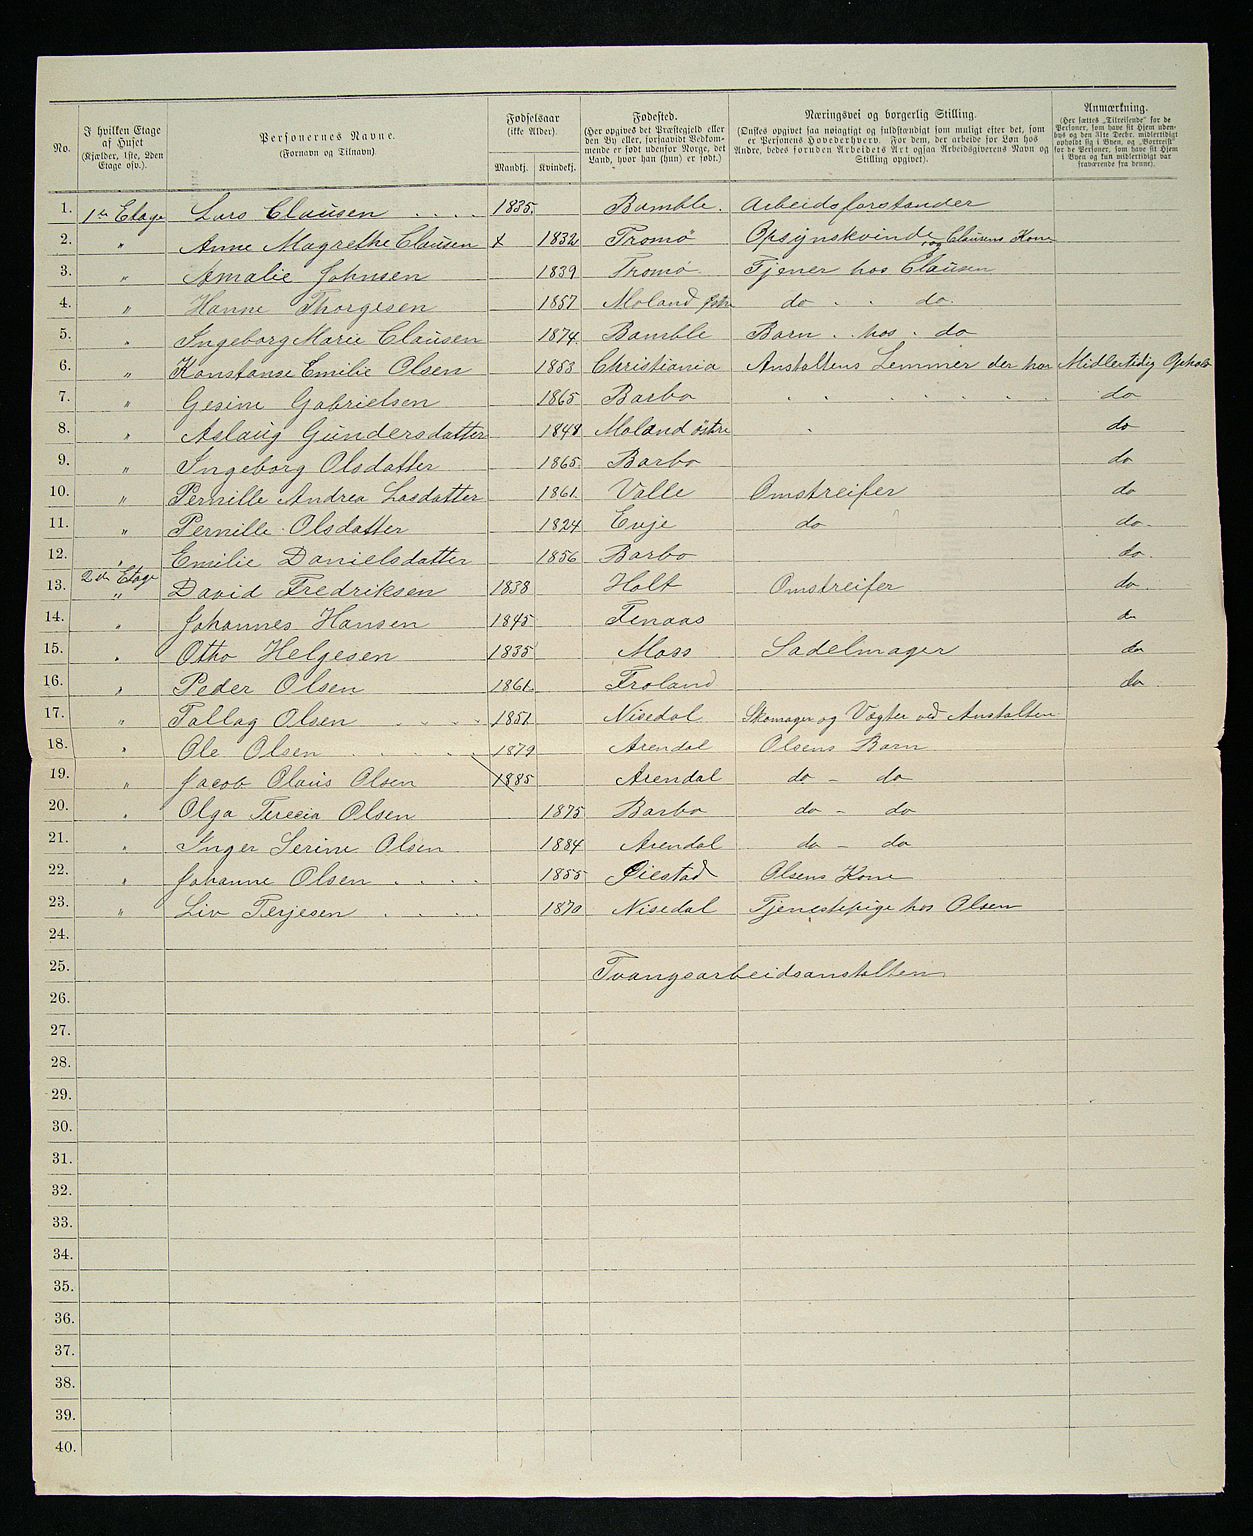 No. | I hvilken Etage af Huset (Kjælder, 1ste, 2den Etage osv.). | Personernes Navne. (Fornavn og Tilnavn). | Fødselsaar (ikke Alder). Mandkj. | Kvindekj. | Fødested. (Her opgives det Præstegjeld eller den By eller, forsaavidt Vedkommende er født udenfor Norge, det Land, hvor han (hun) er født.) | Næringsvei og borgerlig Stilling. (Ønskes opgivet saa nøiagtigt og fuldstændigt som muligt efter det, som er Personens Hovederhverv. For dem, der arbeide for Løn hos Andre, bedes foruden Arbeidets Art ogsaa Arbeidsgiverens Navn og Stilling opgivet). | Anmærkning. (Her sættes „Tilreisende" for de Personer, som have sit Hjem udenbys og den 31te Decbr. midlertidigt opholdt sig i Byen, og „Bortreist" for de Personer, som have sit Hjem i Byen og kun midlertidigt var fraværende fra denne).
1. 1ste Etage Lars Clausen . . . . 1835. Bamble. Arbeidsforstander
2. " Anne Magrethe Clausen x 1832 Tromö Opsynskvinde og Clausens Kone
3. " Amalie Johnsen 1839 Tromö Tjener hos Clausen
4. " Hanne Thorgesen 1857 Moland do . . do.
5. " Ingeborg Marie Clausen 1874. Bamble Barn . hos . do
6. " Konstanse Emilie Olsen 1853 Christiania Anstaltens Lemmer der har Midlertidig Ophold
7. " Gesine Gabrielsen 1865 Barbo . . . . . . . do
8. " Aslaug Gundersdatter 1848 Moland östre . do
9. " Ingeborg Olsdatter 1865. Barbo do
10. " Pernille Andrea Lasdatter 1861. Valle Omstreifer do
11. " Pernille Olsdatter 1824 Evje do do.
12. " Emilie Danielsdatter 1856 Barbo do.
13. 2den Etage " David Fredriksen 1838 Holt Omstreifer do
14. " Johannes Hansen 1845 Finaas do
15. " Otto Helgesen 1835 Moss Sadelmager do
16. " Peder Olsen 1861. Froland do
17. " Tallag Olsen . . . . 1851. Nisedal Skomager og Vægter ved Anstalten
18. " Ole Olsen . . . . . 1879 Arendal Olsens Barn
19. " Jacob Olaus Olsen 1885 Arendal do - do
20. " Olga Terecia Olsen 1875 Barbo do - do
21. " Inger Serine Olsen 1884 Arendal do - do
22. " Johanne Olsen . . . . 1855 Øiestad Olsens Kone
23. " Liv Terjesen . . . . 1870 Nisedal Tjenestepige hos Olsen
24.
25. Tvangsarbeidsanstalten
26.
27.
28.
29.
30.
31.
32.
33.
34.
35.
36.
37.
38.
39.
40.